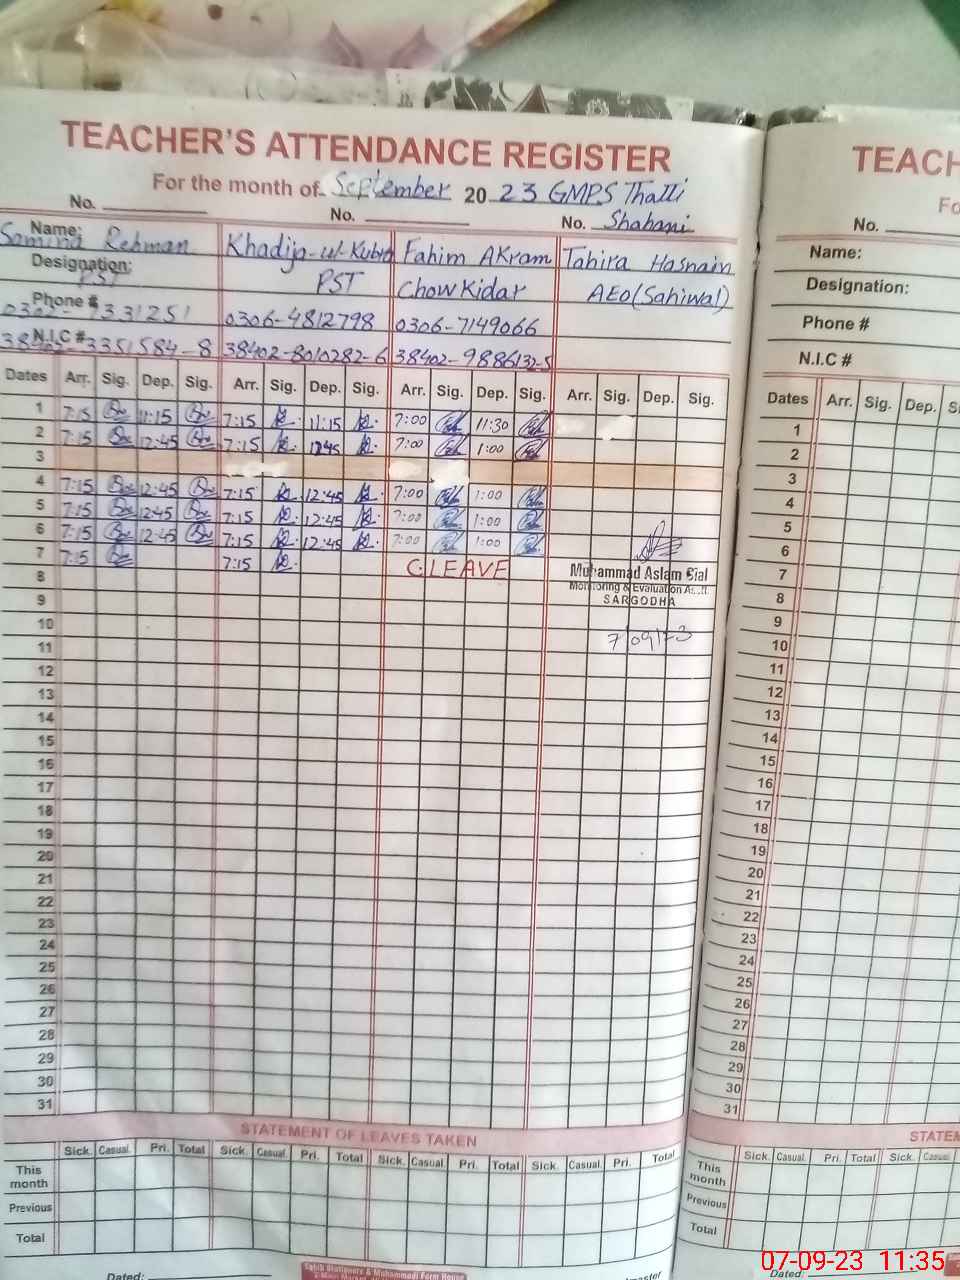 TEACHER'S ATTENDANCE REGISTER
For the month of September 2023 GMPS Thatti
No. No. No. Shahani
Name: Samina Rehman Khadija-ul-Kubra Fahim AKram Tahira Hasnain
Designation: PST PST ChowKidar AEO (Sahiwal)
Phone # 0306-4812798 0306-7149066
N.I.C # 38402-8010282-6 38402-9886132-5
Dates Arr. Sig. Dep. Sig. Arr. Sig. Dep. Sig. Arr. Sig. Dep. Sig. Arr. Sig. Dep. Sig.
1 7:15 11:15 7:15 11:15 7:00 11:30
2 7:15 12:45 7:15 1245 7:00 1:00
3
4 7:15 12:45 7:15 12:45 7:00 1:00
5 7:15 1245 7:15 12:45 7:00 1:00
6 7:15 12:45 7:15 12:45 7:00 1:00
7 7:15 7:15 C.LEAVE
Muhammad Aslam Sial
Monitoring & Evaluation Asstt.
SARGODHA
8
7/09/23
9
10
11
12
13
14
15
16
17
18
19
20
21
22
23
24
25
26
27
28
29
30
31
STATEMENT OF LEAVES TAKEN
Sick. Casual. Pri. Total Sick. Casual. Pri. Total Sick. Casual. Pri. Total Sick. Casual. Pri. Total
This month
Previous
Total
Dated:
Sahib Stationery & Muhammadi Form House
TEACH
Fo
No.
Name:
Designation:
Phone #
N.I.C #
Dates Arr. Sig. Dep. S
1
2
3
4
5
6
7
8
9
10
11
12
13
14
15
16
17
18
19
20
21
22
23
24
25
26
27
28
29
30
31
STATEM
Sick. Casual. Pri. Total Sick. Casual
This month
Previous
Total
Dated:
07-09-23 11:35